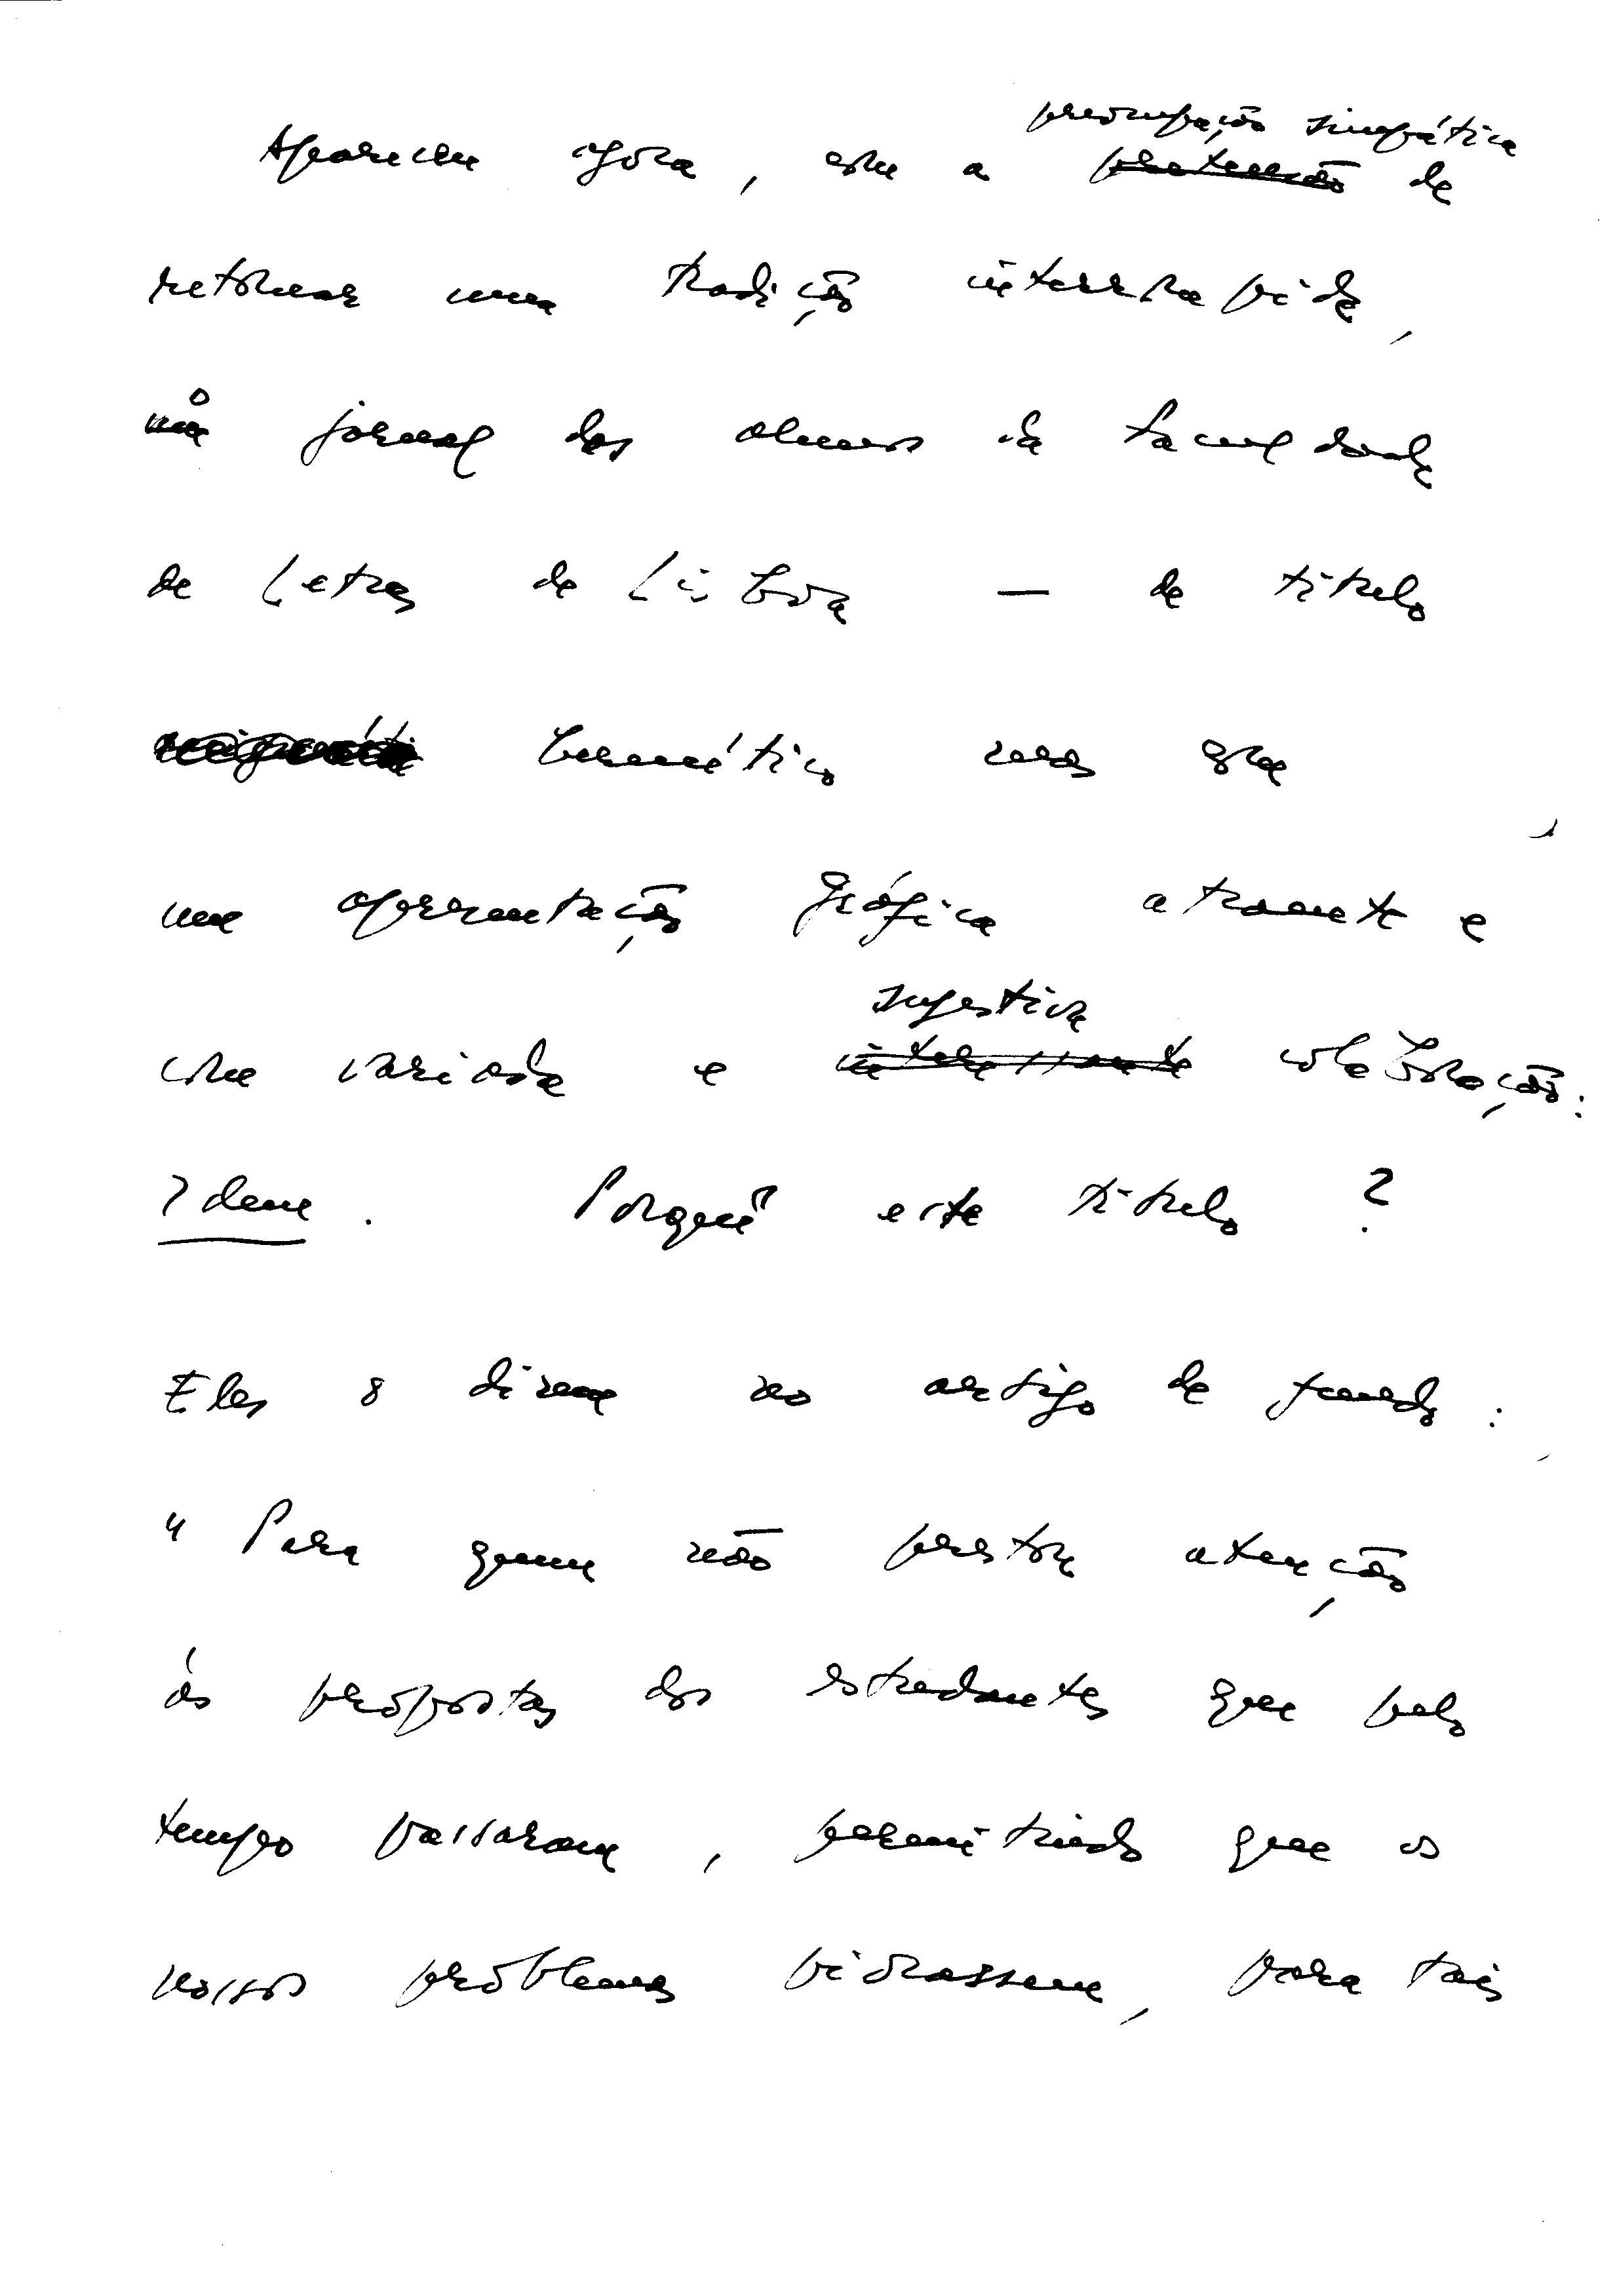 preocupação simpática
Apareceu agora, com a pretensão de
retomar uma tradição interrompida,
o jornal dos alunos da Faculdade
de Letras de Lisboa — de título
hermético mas que
uma apresentação gráfica atraente e
sugestiva
com variada e interessante colaboração:
Idem. Porquê este título?
Eles o dizem no artigo de fundo:
"Para quem não prestou atenção
às propostas dos estudantes que pelo
tempo passaram, permitindo que os
nossos problemas piorassem, para tais